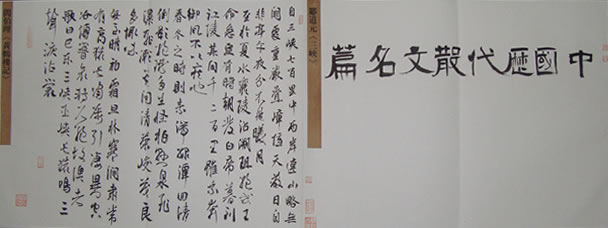 中國歷代散文名篇
酈道元《三峽》
自三峽七百里中兩岸連山略無
闕處重巖疊嶂隱天蔽日自
非亭午夜分不見曦月
至於夏水襄陵沿溯阻絕或王
命急宣有時朝發白帝暮到
江陵其間千二百里雖乘奔
御風不以疾也
春冬之時則素湍綠潭回清
倒影絕巘多生怪柏懸泉飛
漱其間清榮峻茂良
多趣味
每至晴初霜旦林寒澗肅常
有高猿長嘯屬引淒異空
谷傳響哀轉久絕故漁者
歌曰巴東三峽巫峽長猿鳴三
聲淚沾裳
閻伯理《黃鶴樓記》